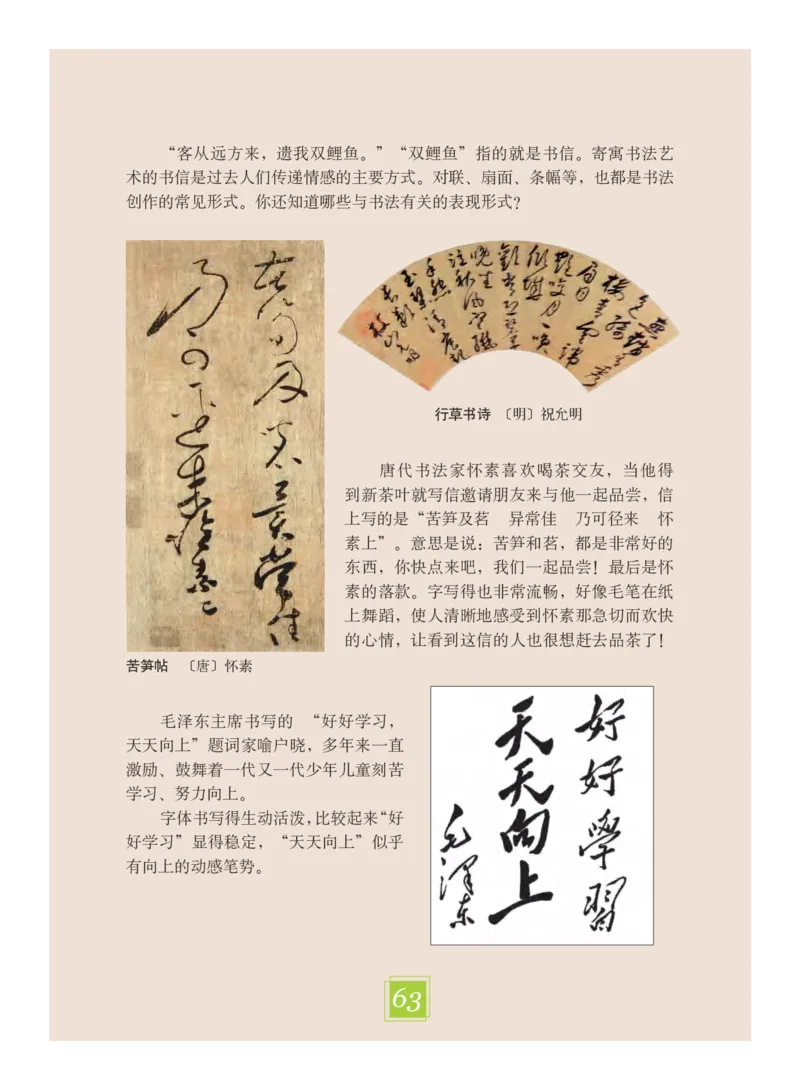 “客从远方来，遗我双鲤鱼。”“双鲤鱼”指的就是书信。寄寓书法艺
术的书信是过去人们传递情感的主要方式。对联、扇面、条幅等，也都是书法
创作的常见形式。你还知道哪些与书法有关的表现形式？
苦笋及茗异常佳
乃可径来怀素上
行草书诗 〔明〕祝允明
唐代书法家怀素喜欢喝茶交友，当他得
到新茶叶就写信邀请朋友来与他一起品尝，信
上写的是“苦笋及茗 异常佳 乃可径来 怀
素上”。意思是说：苦笋和茗，都是非常好的
东西，你快点来吧，我们一起品尝！最后是怀
素的落款。字写得也非常流畅，好像毛笔在纸
上舞蹈，使人清晰地感受到怀素那急切而欢快
的心情，让看到这信的人也很想赶去品茶了！
苦笋帖 〔唐〕怀素
毛泽东主席书写的 “好好学习，
天天向上”题词家喻户晓，多年来一直
激励、鼓舞着一代又一代少年儿童刻苦
学习、努力向上。
字体书写得生动活泼，比较起来“好
好学习”显得稳定，“天天向上”似乎
有向上的动感笔势。
好好學習
天天向上
毛澤东
63